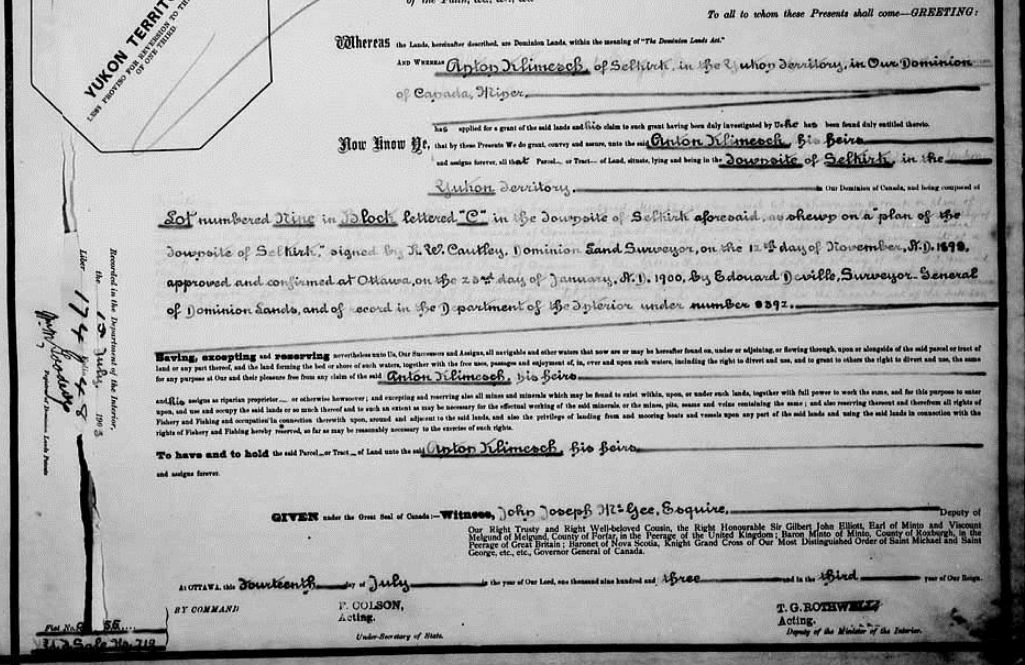 To all to whom these Presents shall come—GREETING:
YUKON TERRITO
LESS PROVISO FOR REVERSION TO TH
OF ONE THIRD
Whereas the Lands, hereinafter described, are Dominion Lands, within the meaning of "The Dominion Lands Act."
AND WHEREAS Anton Klimesch, of Selkirk, in the Yukon Territory, in Our Dominion
of Canada, Miner,
has applied for a grant of the said lands and his claim to such grant having been duly investigated by Us he has been found duly entitled thereto.
Now Know Ye, that by these Presents We do grant, convey and assure, unto the said Anton Klimesch, his heirs
and assigns forever, all that Parcel or Tract of Land, situate, lying and being in the Townsite of Selkirk, in the
Yukon Territory. in Our Dominion of Canada, and being composed of
Lot numbered Nine in Block lettered "C" in the Townsite of Selkirk aforesaid, as shewn on a "plan of the
Townsite of Selkirk," signed by R. W. Cautley, Dominion Land Surveyor, on the 12th day of November, A.D. 1899,
approved and confirmed at Ottawa, on the 23rd day of January, A.D. 1900, by Edouard Deville, Surveyor-General
of Dominion Lands, and of record in the Department of the Interior under number 8392.
Having, excepting and reserving nevertheless unto Us, Our Successors and Assigns, all navigable and other waters that now are or may be hereafter found on, under or adjoining, or flowing through, upon or alongside of the said parcel or tract of
land or any part thereof, and the land forming the bed or shore of such waters, together with the free uses, passages and enjoyment of, in, over and upon such waters, including the right to divert and use, and to grant to others the right to divert and use, the same
for any purpose at Our and their pleasure free from any claim of the said Anton Klimesch, his heirs
and his assigns as riparian proprietor or otherwise howsoever; and excepting and reserving also all mines and minerals which may be found to exist within, upon, or under such lands, together with full power to work the same, and for this purpose to enter
upon, and use and occupy the said lands or so much thereof and to such an extent as may be necessary for the effectual working of the said minerals, or the mines, pits, seams and veins containing the same; and also reserving thereout and therefrom all rights of
Fishery and Fishing and occupation in connection therewith upon, around and adjacent to the said lands, and also the privilege of landing from and mooring boats and vessels upon any part of the said lands and using the said lands in connection with the
rights of Fishery and Fishing hereby reserved, so far as may be reasonably necessary to the exercise of such rights.
To have and to hold the said Parcel or Tract of Land unto the said Anton Klimesch, his heirs
and assigns forever.
GIVEN under the Great Seal of Canada:—Witness, John Joseph McGee, Esquire, Deputy of
Our Right Trusty and Right Well-beloved Cousin, the Right Honourable Sir Gilbert John Elliott, Earl of Minto and Viscount
Melgund of Melgund, County of Forfar, in the Peerage of the United Kingdom; Baron Minto of Minto, County of Roxburgh, in the
Peerage of Great Britain; Baronet of Nova Scotia, Knight Grand Cross of Our Most Distinguished Order of Saint Michael and Saint
George, etc., etc., Governor General of Canada.
At OTTAWA, this Fourteenth day of July in the year of Our Lord, one thousand nine hundred and three and in the third year of Our Reign.
BY COMMAND
P. COLSON,
Acting.
Under-Secretary of State.
T. G. ROTHWELL
Acting.
Deputy of the Minister of the Interior.
Recorded in the Department of the Interior,
the July 1903
Liber 174 Folio 48
Registrar of Dominion Lands Patents
Fiat No.
Sale No. 719